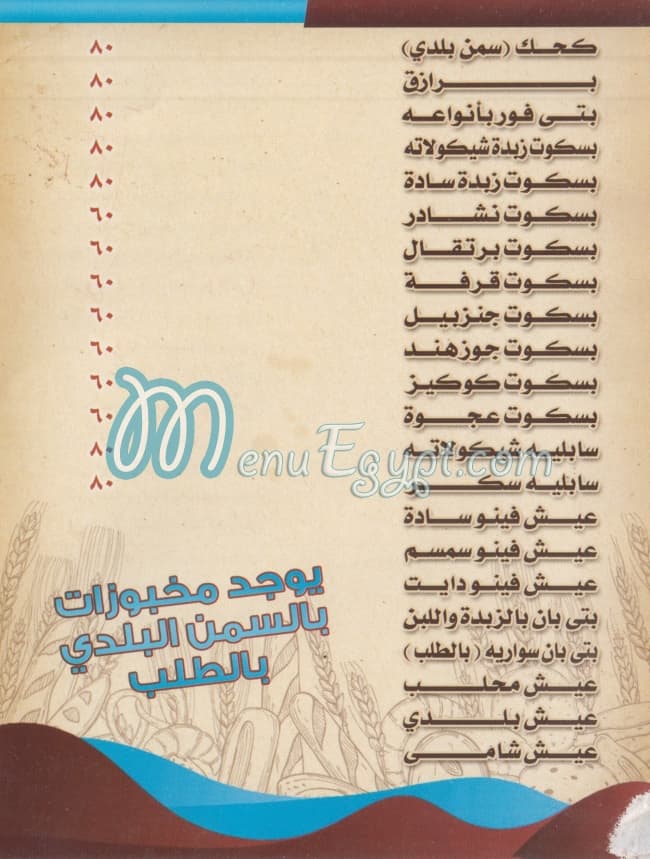 كحك (سمن بلدي) ٨٠
برازق ٨٠
بتى فور بأنواعه ٨٠
بسكوت زبدة شيكولاته ٨٠
بسكوت زبدة سادة ٨٠
بسكوت نشادر ٦٠
بسكوت برتقال ٦٠
بسكوت قرفة ٦٠
بسكوت جنزبيل ٦٠
بسكوت جوز هند ٦٠
بسكوت كوكيز ٦٠
بسكوت عجوة ٦٠
سابليه شيكولاته ٨٠
سابليه سكر ٨٠
عيش فينو سادة
عيش فينو سمسم
عيش فينو دايت
بتى بان بالزبدة واللبن
بتى بان سواريه (بالطلب)
عيش محلب
عيش بلدي
عيش شامى
يوجد مخبوزات
بالسمن البلدي
بالطلب
MenuEgypt.com